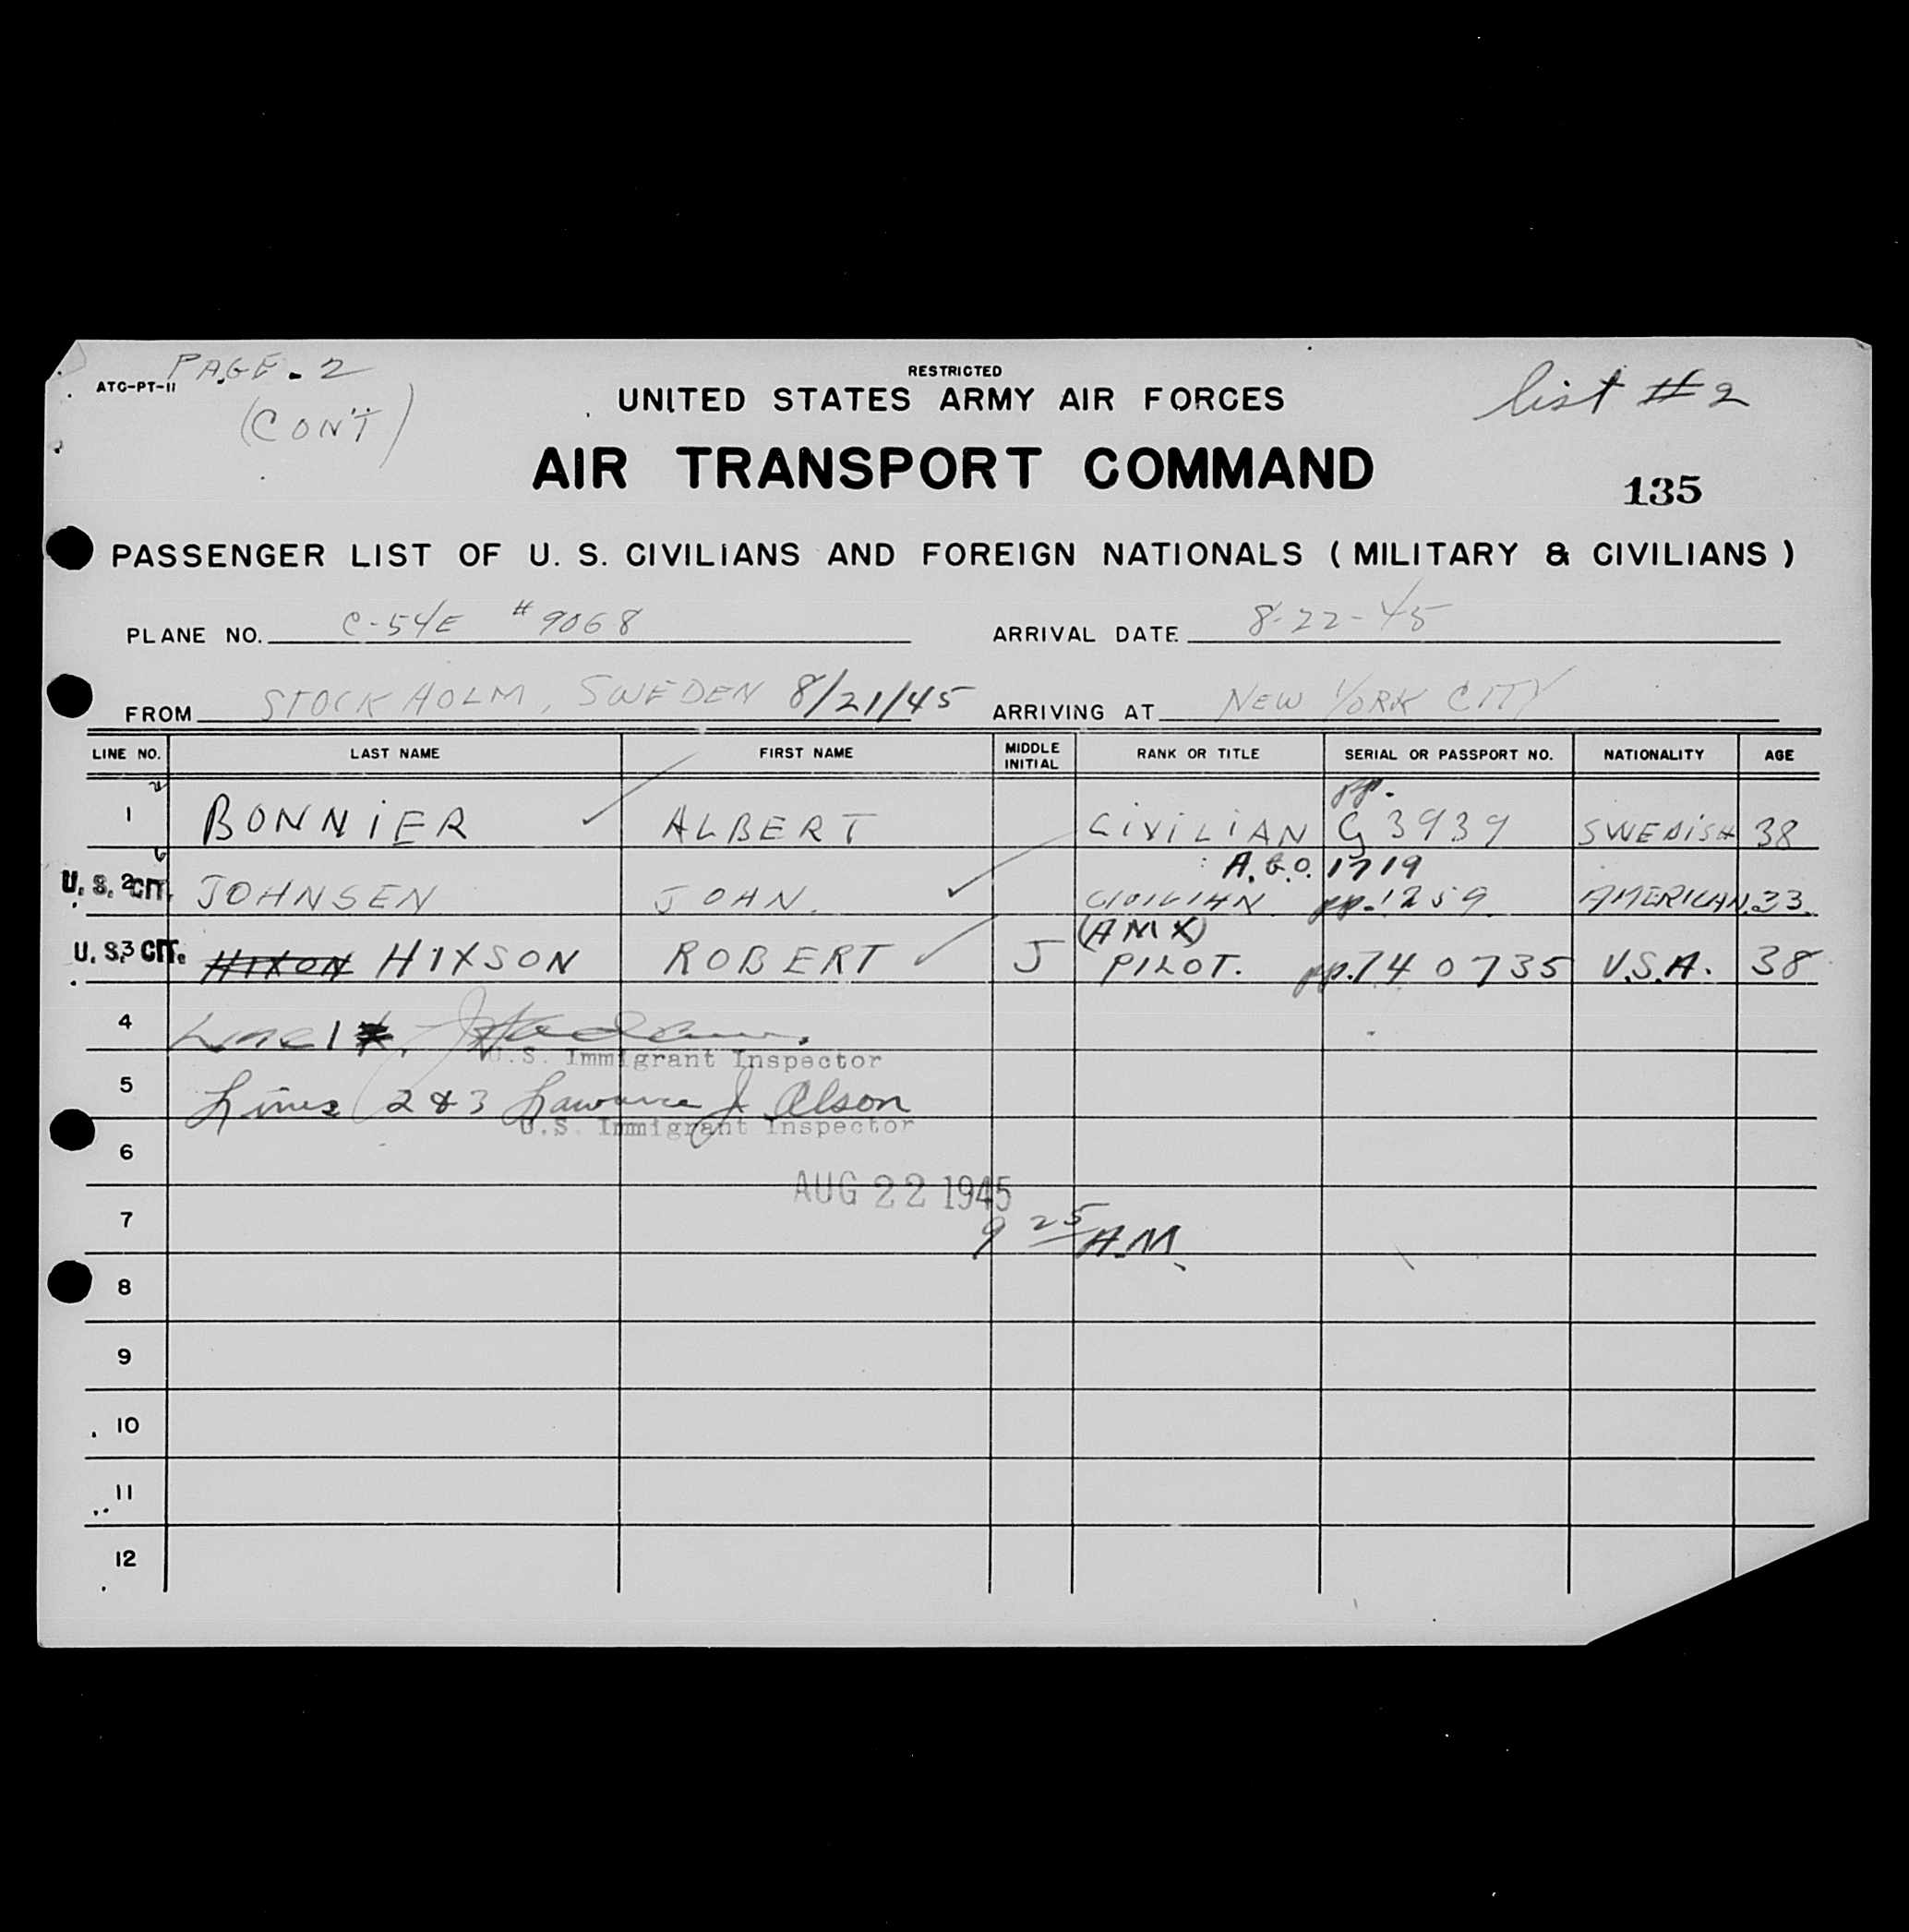 PAGE - 2
ATC-PT-11
(CON'T)
RESTRICTED
UNITED STATES ARMY AIR FORCES
list #2
AIR TRANSPORT COMMAND
135
PASSENGER LIST OF U. S. CIVILIANS AND FOREIGN NATIONALS ( MILITARY & CIVILIANS )
PLANE NO. C-54E #9068 ARRIVAL DATE 8-22-45
FROM STOCKHOLM, SWEDEN 8/21/45 ARRIVING AT NEW YORK CITY
LINE NO. LAST NAME FIRST NAME MIDDLE INITIAL RANK OR TITLE SERIAL OR PASSPORT NO. NATIONALITY AGE
1 BONNIER ALBERT CIVILIAN pp. G 3939 SWEDISH 38
A.G.O. 1719
U. S. CIT. 2 JOHNSEN JOHN. CIVILIAN pp. 1259 AMERICAN. 33.
(AMX)
U. S. CIT. 3 HIXON HIXSON ROBERT J PILOT. pp. 740735 U.S.A. 38
4 Line 1
U.S. Immigrant Inspector
5 Lines 2 & 3 Lawrence J. Olson
U.S. Immigrant Inspector
6
AUG 22 1945
7 9 25 A.M.
8
9
10
11
12